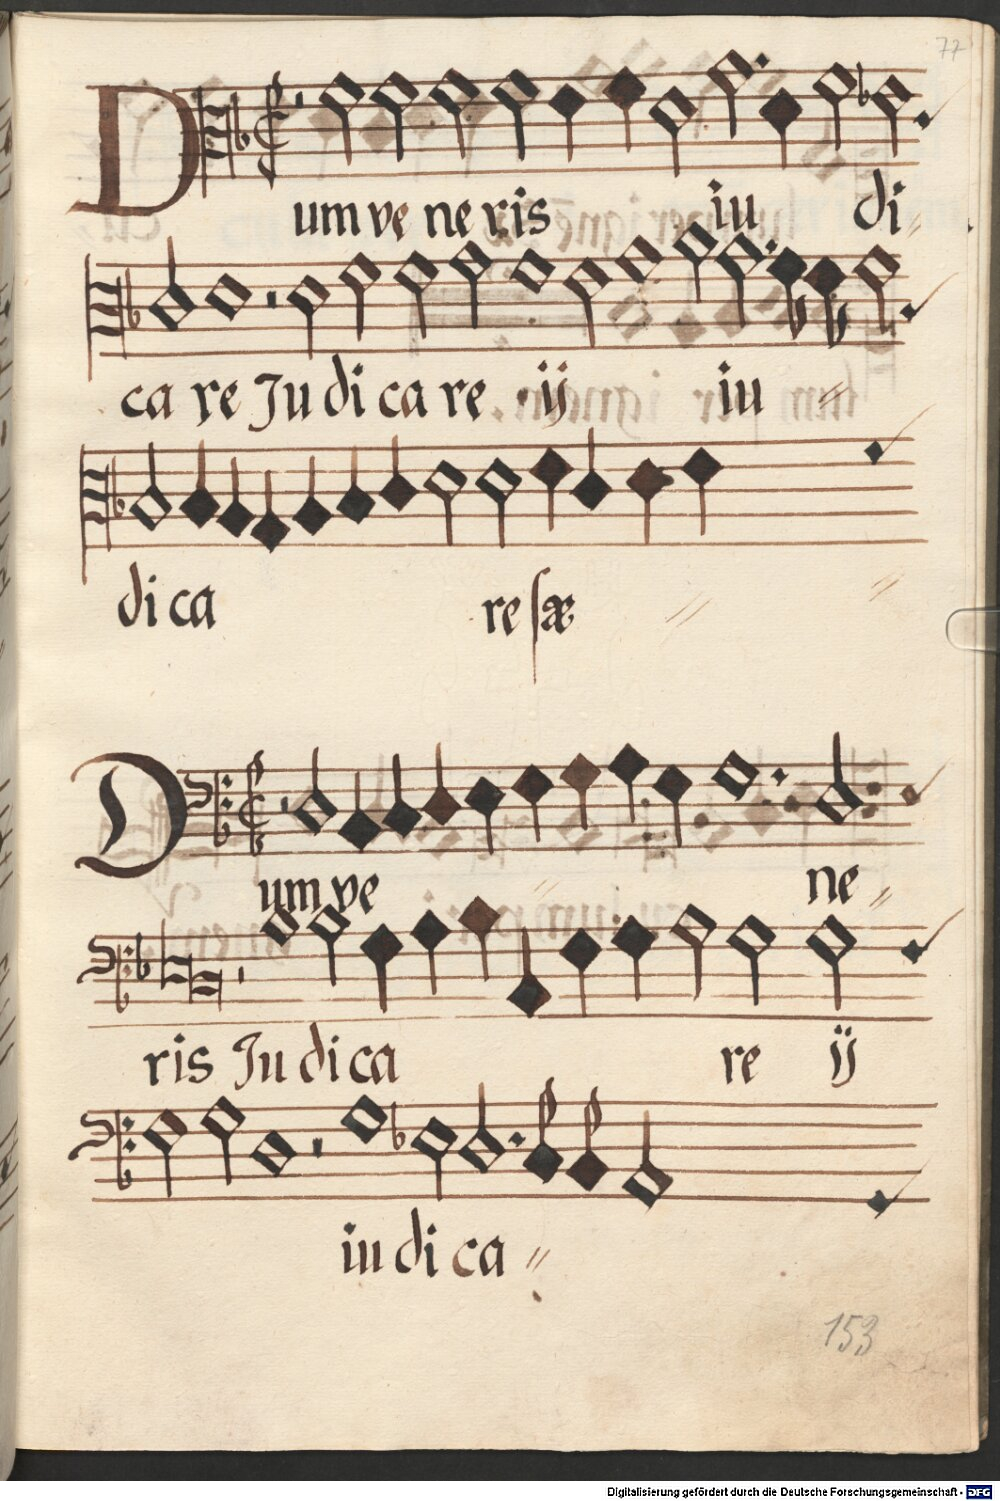 77
Dum ve ne ris iu di〃
ca re Ju di ca re ij iu 〃
di ca re sæ 〃 〃
Dum ve 〃 ne〃
ris Ju di ca re ij
iu di ca 〃
153
Digitalisierung gefördert durch die Deutsche Forschungsgemeinschaft - DFG